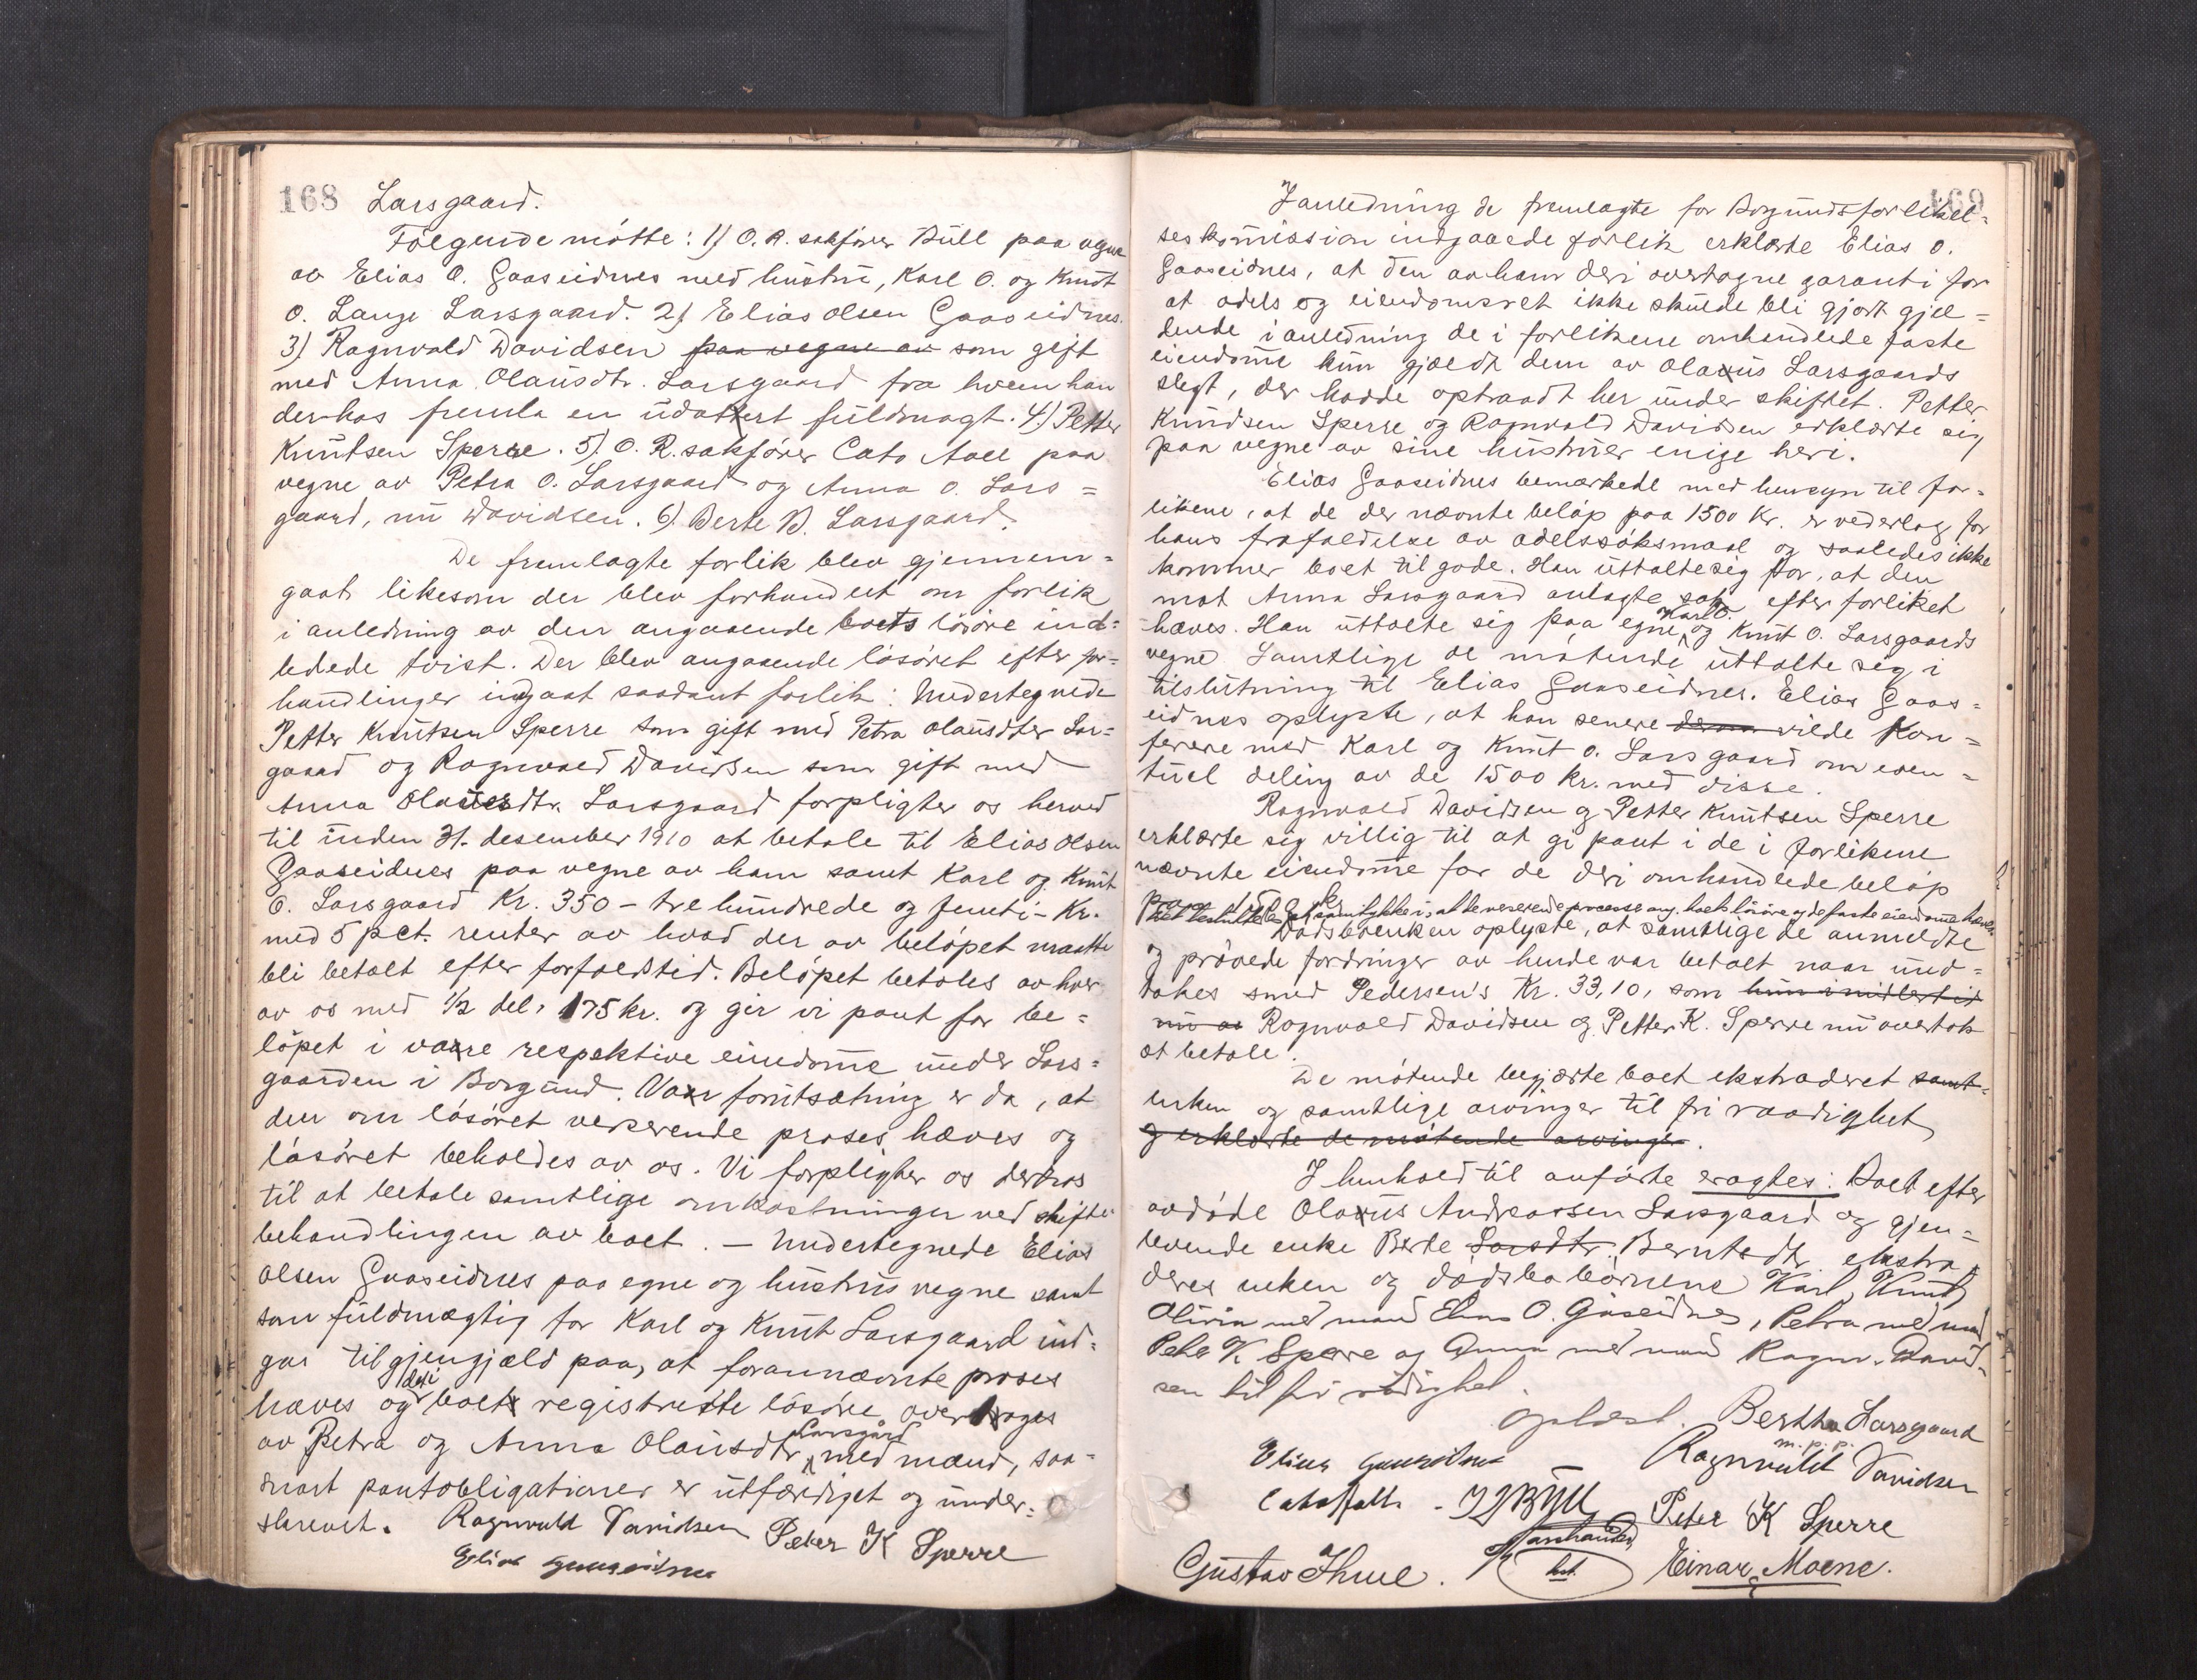 168 Larsgaard.
Følgende møtte: 1) O.R. sakfører Bull paa vegne
av Elias O. Gaaseidnes med hustru, Karl O. og Knut
O. Lange Larsgaard. 2) Elias Olsen Gaaseidnes.
3) Ragnvald Davidsen paa vegne av som gift
med Anna Olausdtr. Larsgaard fra hvem han
derhos fremla en udatert fuldmagt. 4) Petter
Knutsen Sperre. 5) O.R. sakfører Cato Aall paa
vegne av Petra O. Larsgaard og Anna O. Lars=
gaard, nu Davidsen. 6) Berte B. Larsgaard.
De fremlagte forlik blev gjennem=
gaat likesom der blev forhandlet om forlik
i anledning av den angaaende boets løsøre ind=
ledede tvist. Der blev angaaende løsøret efter for=
handlinger indgaat saadant forlik: Undertegnede
Petter Knutsen Sperre som gift med Petra Olausdter Lar=
gaard og Ragnvald Davidsen som gift med
Anna Olausdtr. Larsgaard forpligter os herved
til inden 31. desember 1910 at betale til Elias Olsen
Gaaseidnes paa vegne av ham samt Karl og Knut
O. Larsgaard Kr. 350 – tre hundrede og femti – Kr.
med 5 pct. renter av hvad der av beløpet maatte
bli betalt efter forfaldstid. Beløpet betales av hver
av os med 1/2 del, 175 kr. og gir vi pant for be=
løpet i vore respektive eiendomme under Lars=
gaarden i Borgund. Vor forutsætning er da, at
den om løsøret verserende proses hæves og
løsøret beholdes av os. Vi forpligter os derhos
til at betale samtlige omkostninger ved skifte=
behandlingen av boet. – Undertegnede Elias
Olsen Gaaseidnes paa egne og hustrus vegne samt
som fuldmægtig for Karl og Knut Larsgaard ind=
gar til gjengjæld paa, at forannævnte proses
hæves og det i boet registrerte løsøre overtages
av Petra og Anna Olausdtr. Larsgård med mænd, saa=
snart pantobligationer er utfærdiget og under=
skrevet. Ragnvald Davidsen Peter K Sperre
Elias Gaaseidnes
169
I anledning de fremlagte for Borgunds forlikel=
seskommission indgaaede forlik erklærte Elias O.
Gaaseidnes, at den av ham deri overtagne garanti for
at odels og eiendomsret ikke skulde bli gjort gjæl=
dende i anledning de i forlikene omhandlede faste
eiendomme kun gjældt dem av Olaus Larsgaards
slegt, der hadde optraadt her under skiftet. Petter
Knudsen Sperre og Ragnvald Davidsen erklærte sig
paa vegne av sine hustruer enige heri.
Elias Gaaseidnes bemærkede med hensyn til for=
likene, at de der nævnte beløp paa 1500 Kr. er vederlag for
hans frafaldelse av odelssøksmaal og saaledes ikke
kommer boet til gode. Han uttalte sig for, at den
mot Anna Larsgaard anlagte sak efter forliket
hæves. Han uttalte sig paa egne, Karl O. og Knut O. Larsgaards
vegne. Samtlige de møtende uttalte sig i
tilslutning til Elias Gaaseidnes. Elias Gaas=
eidnes oplyste, at han senere vilde kon=
ferere med Karl og Knut O. Larsgaard om even=
tuel deling av de 1500 kr. med disse.
Ragnvald Davidsen og Petter Knutsen Sperre
erklærte sig villig til at gi pant i de i forlikene
nævnte eiendomme for de deri omhandlede beløp
paa 1500 kr.
at de verserende processe ang. boets løsøre og de faste eiendomme hæves.
Dødsboenken oplyste, at samtlige de anmeldte
og prøvede fordringer av hende var betalt naar und=
takes smed Pedersen's Kr. 33,10, som hun imidlertid
nu av Ragnvald Davidsen og Petter K. Sperre nu overtok
at betale.
De møtende begjærte boet ekstraderet samt=
enken og samtlige arvinger til fri raadighet
og erklærte de møtende arvinger.
I henhold til anførte eragtes: Boet efter
avdøde Olaus Andreassen Larsgaard og gjen=
levende enke Berte Larsdtr. Berntsdtr. ekstra=
deres enken og dødsbobørnene Karl, Knut,
Olivia med mand Elias O. Gåseidnes, Petra med mand
Peter K Sperre og Anna med mand Ragnv. David=
sen til fri rådighet.
Oplæst. Bertha Larsgaard
m.p.p.
Elias Gaaseidnes – Ragnvald Davidsen
Cato Aall. – Bull Peter K Sperre
Gustav Thue. Einar Moene.